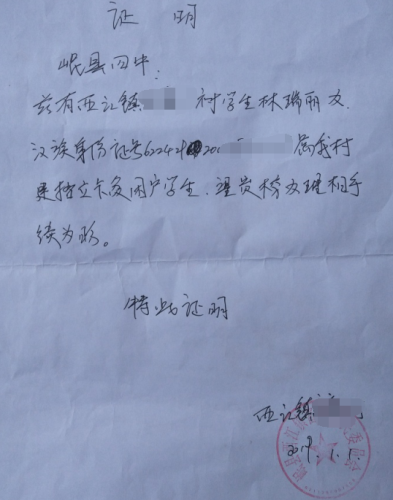 证 明
岷县四中:
兹有西江镇 村学生林瑞丽女、
汉族身份证号62242 200 属我村
建档立卡贫困户学生、望贵校办理相手
续为盼。
特此证明
西江镇
2019.1.1.